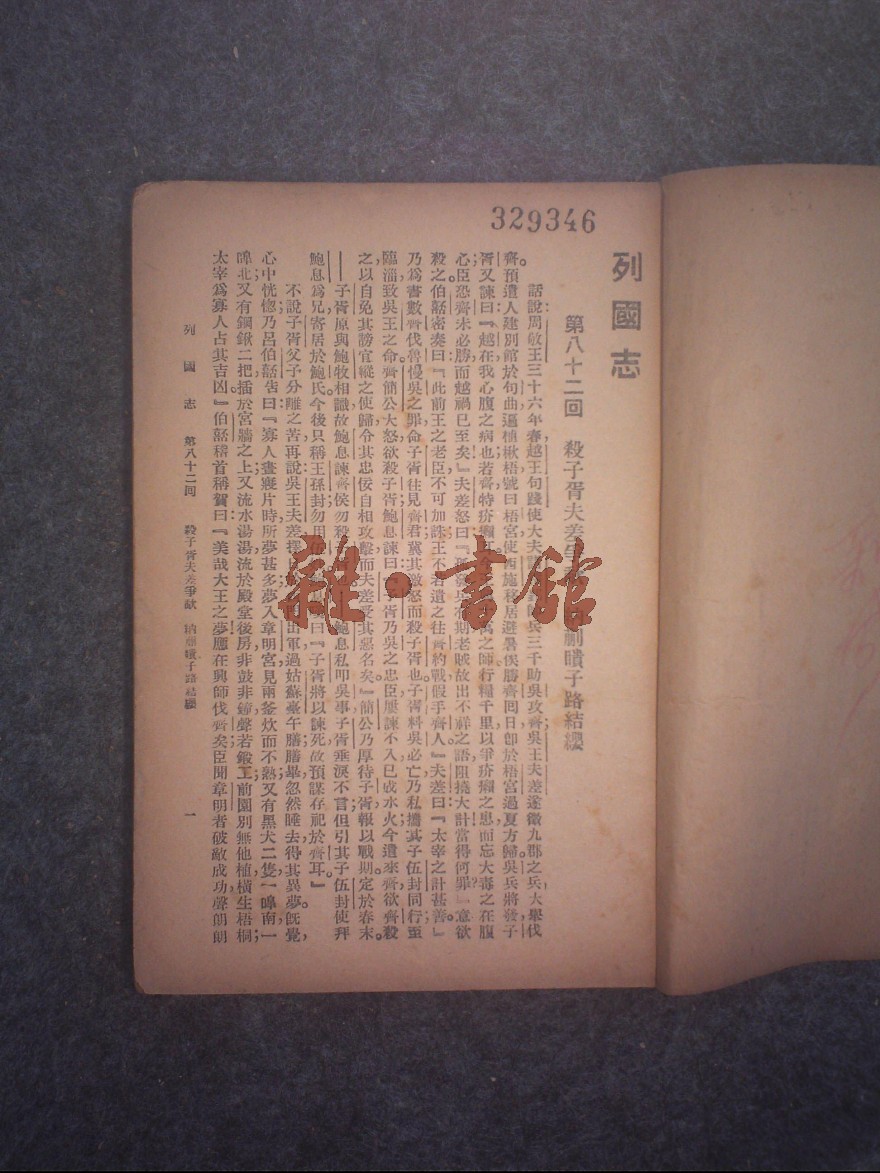 329346
列國志
第八十二回 殺子胥夫差爭 蒯瞶子路結纓
話說周敬王三十六年春,越王句踐使大夫 兵三千,助吳攻齊,吳王夫差遂徵九郡之兵,大舉伐
齊。預遣人建別館於句曲,遍植楸梧,號曰梧宮,使西施移居避暑。俟勝齊回日,卽於梧宮過夏方歸。吳兵將發,子
胥又諫曰:『越在我心腹之病也;若齊特疥癩 萬之師,行糧千里,以爭疥癩之患,而忘大毒之在腹
心,臣恐齊未必勝,而越禍已至矣!』夫差怒曰:『 兵有期,老賊故出不祥之語,阻撓大計,當得何罪?』意欲
殺之。伯嚭密奏曰:『此前王之老臣,不可加誅,王不若遣之往齊約戰,假手齊人。』夫差曰:『太宰之計甚善。』
乃爲書數齊伐魯慢吳之罪,命子胥往見齊君,冀其激怒而殺子胥也。子胥料吳必亡,乃私攜其子伍封同行,至
臨淄,致吳王之命。齊簡公大怒,欲殺子胥。鮑息諫曰:『子胥乃吳之忠臣,屢諫不入,已成水火,今遣來齊,欲齊殺
之,以自免其謗,宜縱之使歸,令其忠佞自相攻擊,而夫差受其惡名矣。』簡公乃厚待子胥,報以戰期,定於春末。
——子胥原與鮑牧相識,故鮑息諫齊侯勿殺 鮑息私叩吳事,子胥垂淚不言,但引其子伍封,使拜
鮑息爲兄,寄居於鮑氏,今後只稱王孫封,勿用伍 曰:『子胥將以諫死,故預謀存祀於齊耳。』
不說子胥父子分離之苦,再說吳王夫差擇 出軍,過姑蘇臺午膳,膳畢,忽然睡去,得其異夢。旣覺,
心中恍惚,乃召伯嚭告曰:『寡人晝寢片時,所夢甚多,夢入章明宮,見兩釜炊而不熟;又有黑犬二隻,一嘷南,一
嘷北;又有鋼鍬二把,插於宮牆之上;又流水湯湯,流於殿堂;後房非鼓非鐘,聲若鍛工;前園別無他植,橫生梧桐;
太宰爲寡人占其吉凶。』伯嚭稽首稱賀曰:『美哉!大王之夢,應在興師伐齊矣。臣聞章明者,破敵成功,聲朗朗
列國志 第八十二回 殺子胥夫差爭歃 納蒯瞶子路結纓 一
雜·書館